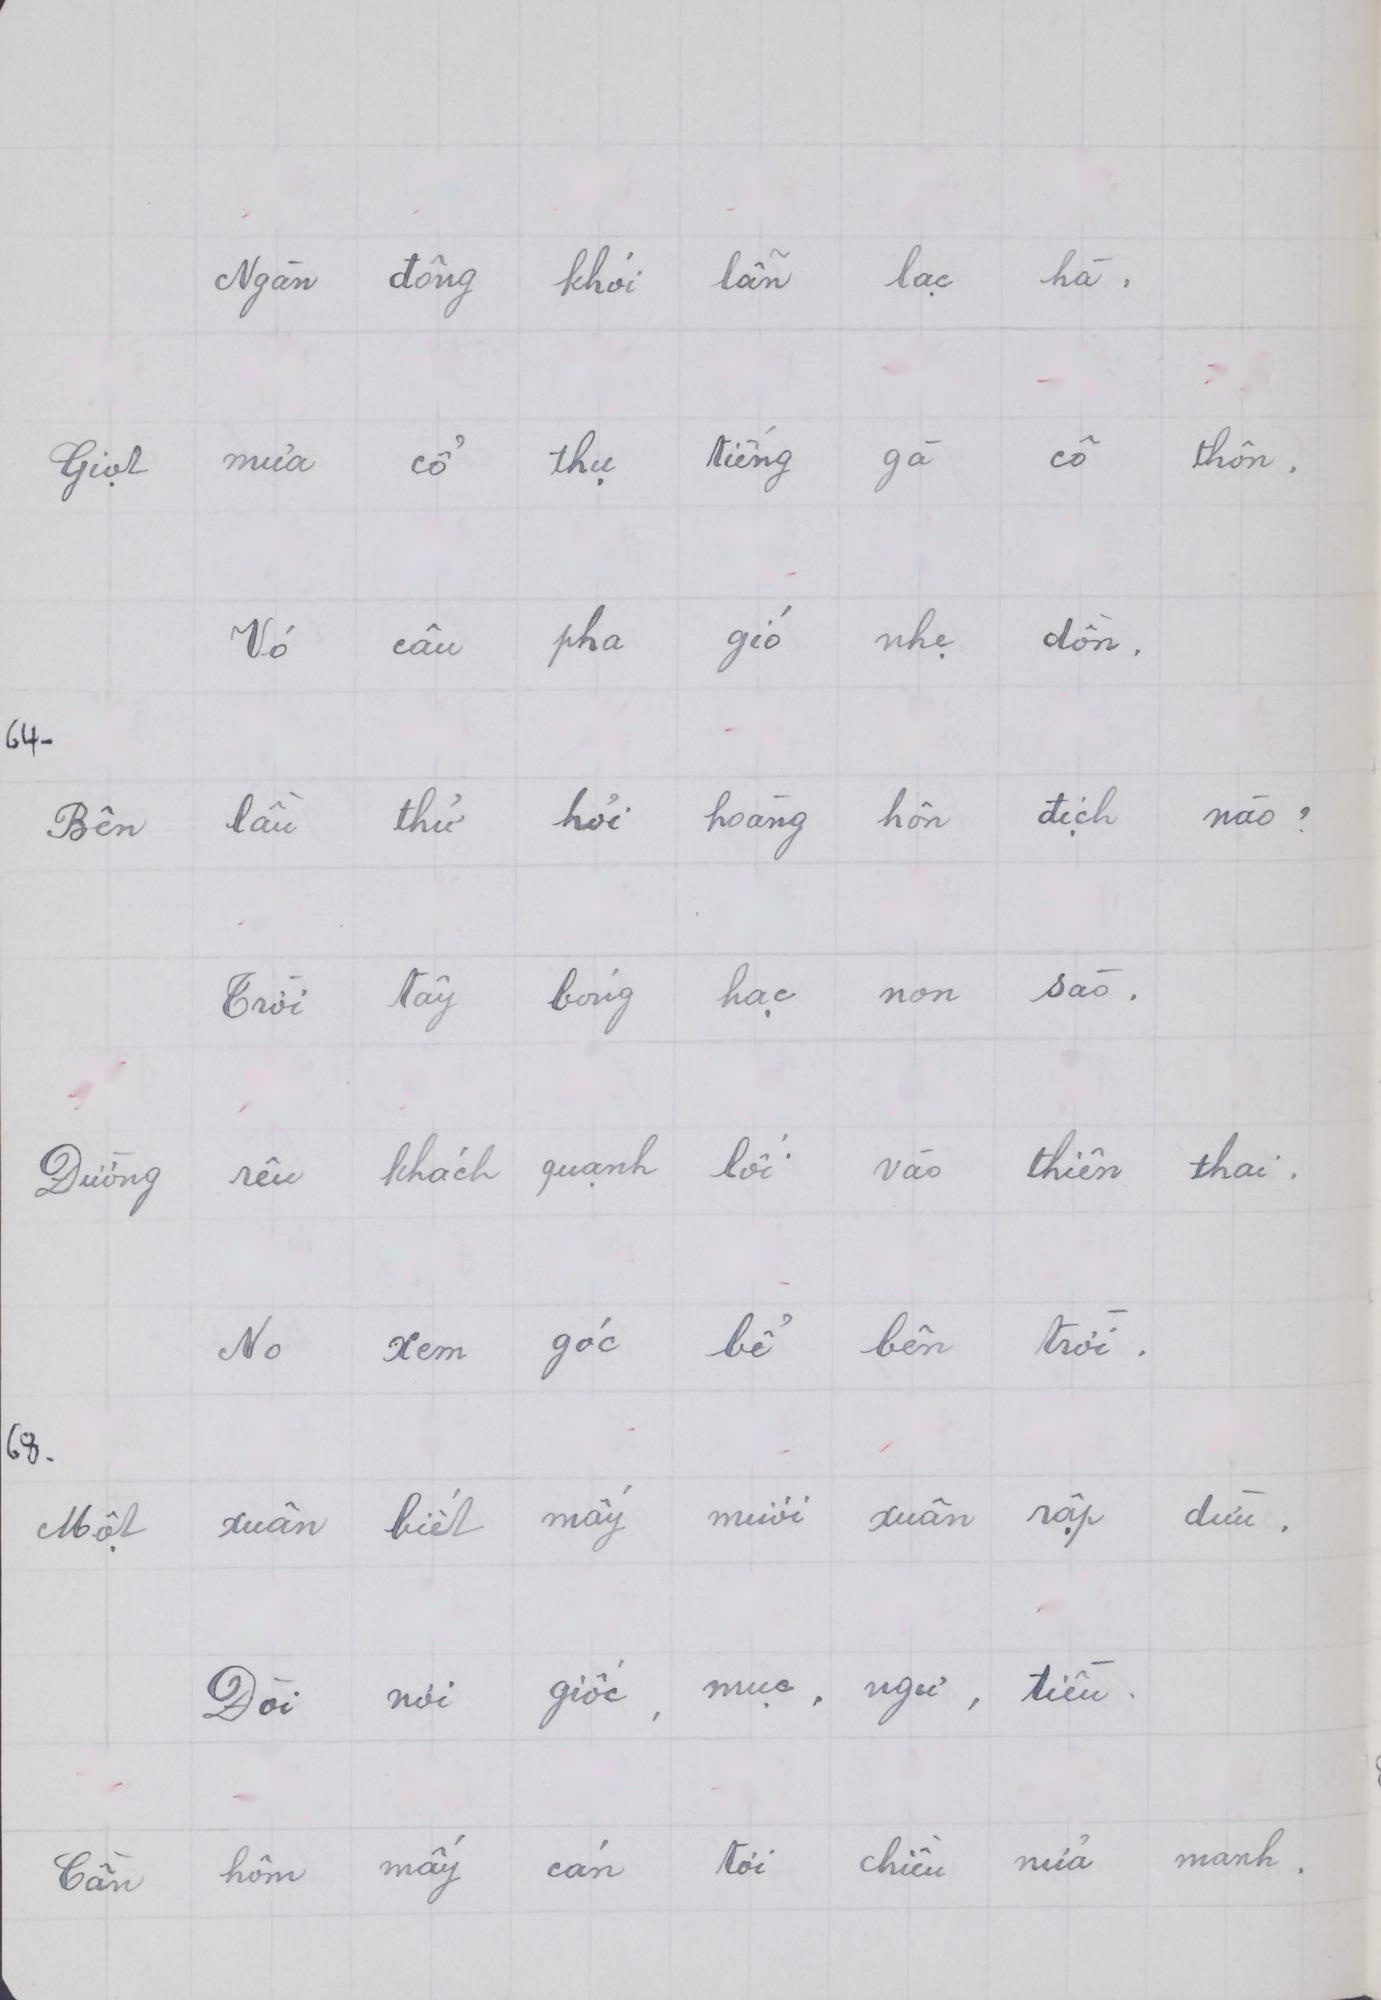 Ngàn đông khói lẫn lạc hà.
Giọt mưa cổ thụ tiếng gà cô thôn.
Vó câu pha gió nhẹ dồn.
64-
Bên lầu thử hỏi hoàng hôn địch nào?
Trời tây bóng hạc non sào.
Đường rêu khách quạnh lối vào thiên thai.
No xem góc bể bên trời.
68.
Một xuân biết mấy mươi xuân rập dìu.
Đòi nơi giốc, mục, ngư, tiều.
Cần hôm mấy cán tơi chiều nửa manh.